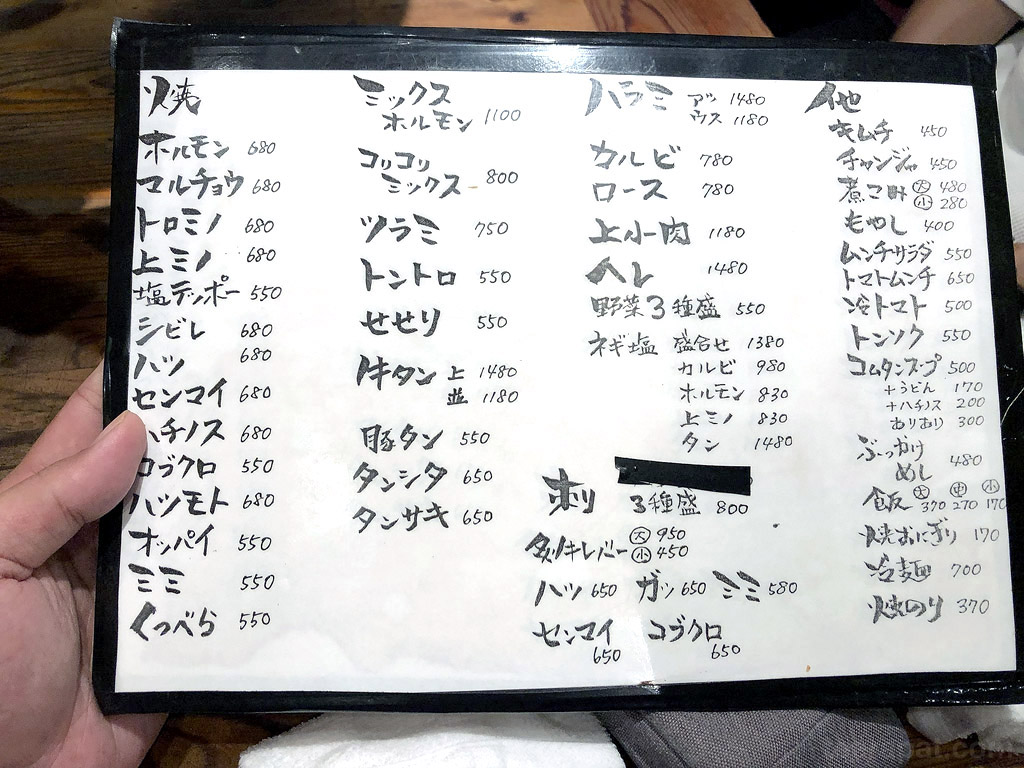 焼
ホルモン 680
マルチョウ 680
トロミノ 680
上ミノ 680
塩テッポー 550
シビレ 680
ハツ 680
センマイ 680
ハチノス 680
コブクロ 550
ハツモト 680
オッパイ 550
ミミ 550
くつべら 550
ミックス
ホルモン 1100
コリコリ
ミックス 800
ツラミ 750
トントロ 550
せせり 550
牛タン 上 1480
並 1180
豚タン 550
タンシタ 650
タンサキ 650
ハラミ アツ 1480
ウス 1180
カルビ 780
ロース 780
上小肉 1180
ヘレ 1480
野菜3種盛 550
ネギ塩 盛合せ 1380
カルビ 980
ホルモン 830
上ミノ 830
タン 1480
3種盛 800
炙りキレバー 大 950
小 450
ハツ 650 ガツ 650 ミミ 580
センマイ 650 コブクロ 650
他
キムチ 450
チャンジャ 450
煮こみ 大 480
小 280
もやし 400
ムンチサラダ 550
トマトムンチ 650
冷トマト 500
トンソク 550
コムタンスープ 500
+うどん 170
+ハチノス 200
おりおり 300
ぶっかけ
めし 480
飯 大 370 中 270 小 170
焼おにぎり 170
冷麺 700
焼のり 370